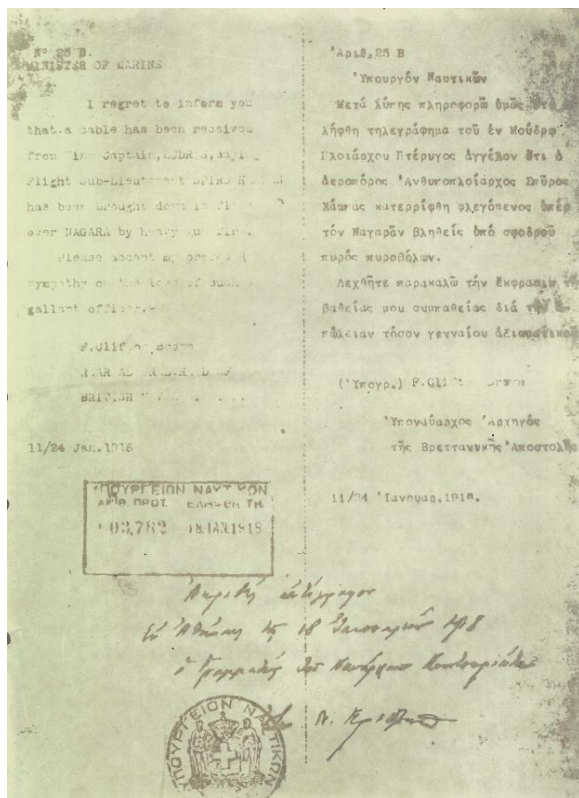 Nº 25 B.
MINISTER OF MARINE
I regret to inform you
that a cable has been received
from Wing Captain, MUDROS, saying
Flight Sub-Lieutenant SPIRO
has been brought down in
over NAGARA by heavy gun fire.
Please accept my
sympathy on the loss of such
gallant officer.-
F.Clifton Brown
BRITISH
11/24 Jan.1918
Ἀριθ.25 B
Ὑπουργόν Ναυτικῶν
Μετά λύπης πληροφορῶ ὑμᾶς ὅτι
λήφθη τηλεγράφημα τοῦ ἐν Μούδρῳ
Πλοιάρχου Πτέρυγος ἀγγέλον ὅτι ὁ
ἀεροπόρος Ἀνθυποπλοίαρχος Σπῦρος
Χάμπας κατερρίφθη φλεγόμενος ὑπέρ
τόν Ναγαρᾶν βληθείς ὑπό σφοδροῦ
πυρός πυροβόλων.
Δεχθῆτε παρακαλῶ τήν ἔκφρασιν τῆς
βαθείας μου συμπαθείας διά τήν ἀ-
πώλειαν τόσον γενναίου ἀξιωματικοῦ
(Ὑπογρ.) F.Clifton Brown
Ὑποναύαρχος Ἀρχηγός
τῆς Βρεττανυκῆς Ἀποστολῆς
11/24 Ἰανουαρ.1918.
ΥΠΟΥΡΓΕΙΟΝ ΝΑΥΤΙΚΩΝ
ΑΡΙΘ ΠΡΩΤ. ΕΛΗΦΘΗ ΤΗ
03,782 18 ΙΑΝ.1918
Ἀκριβές ἀντίγραφον
Ἐν Ἀθήναις τῇ 18 Ἰανουαρίου 1918
ὁ Γραμματεύς τοῦ Ναυάρχου Κουντουριώτου
ΥΠΟΥΡΓΕΙΟΝ ΝΑΥΤΙΚΩΝ